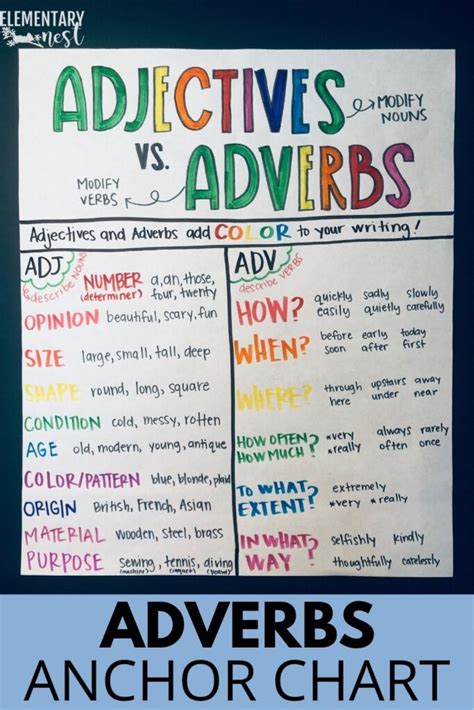 ELEMENTARY
nest
ADJECTIVES
MODIFY
NOUNS
VS.
ADVERBS
MODIFY
VERBS
Adjectives and Adverbs add COLOR to your writing!
ADJ
describe NOUNS
NUMBER a, an, those,
(determiner) four, twenty
OPINION beautiful, scary, fun
SIZE large, small, tall, deep
SHAPE round, long, square
CONDITION cold, messy, rotten
AGE old, modern, young, antique
COLOR/PATTERN blue, blonde, plaid
ORIGIN British, French, Asian
MATERIAL wooden, steel, brass
PURPOSE sewing, tennis, diving
(machine) (board)
ADV
describe VERBS
HOW? quickly sadly slowly
easily quietly carefully
WHEN? before early today
soon after first
WHERE? through upstairs away
here under near
HOW OFTEN? *very always rarely
HOW MUCH? *really often once
TO WHAT extremely
EXTENT? *very *really
IN WHAT selfishly kindly
WAY? thoughtfully carelessly
ADVERBS
ANCHOR CHART